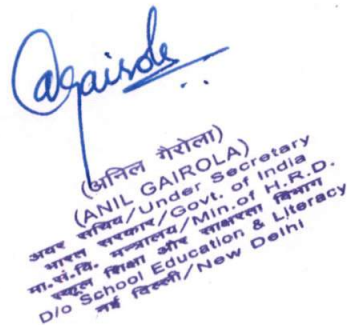 AGairola
(अनिल गैरोला)
(ANIL GAIROLA)
अवर सचिव/Under Secretary
भारत सरकार/Govt. of India
मा.सं.वि. मन्त्रालय/Min.of H.R.D.
स्कूल शिक्षा और साक्षरता विभाग
D/o School Education & Literacy
नई दिल्ली/New Delhi